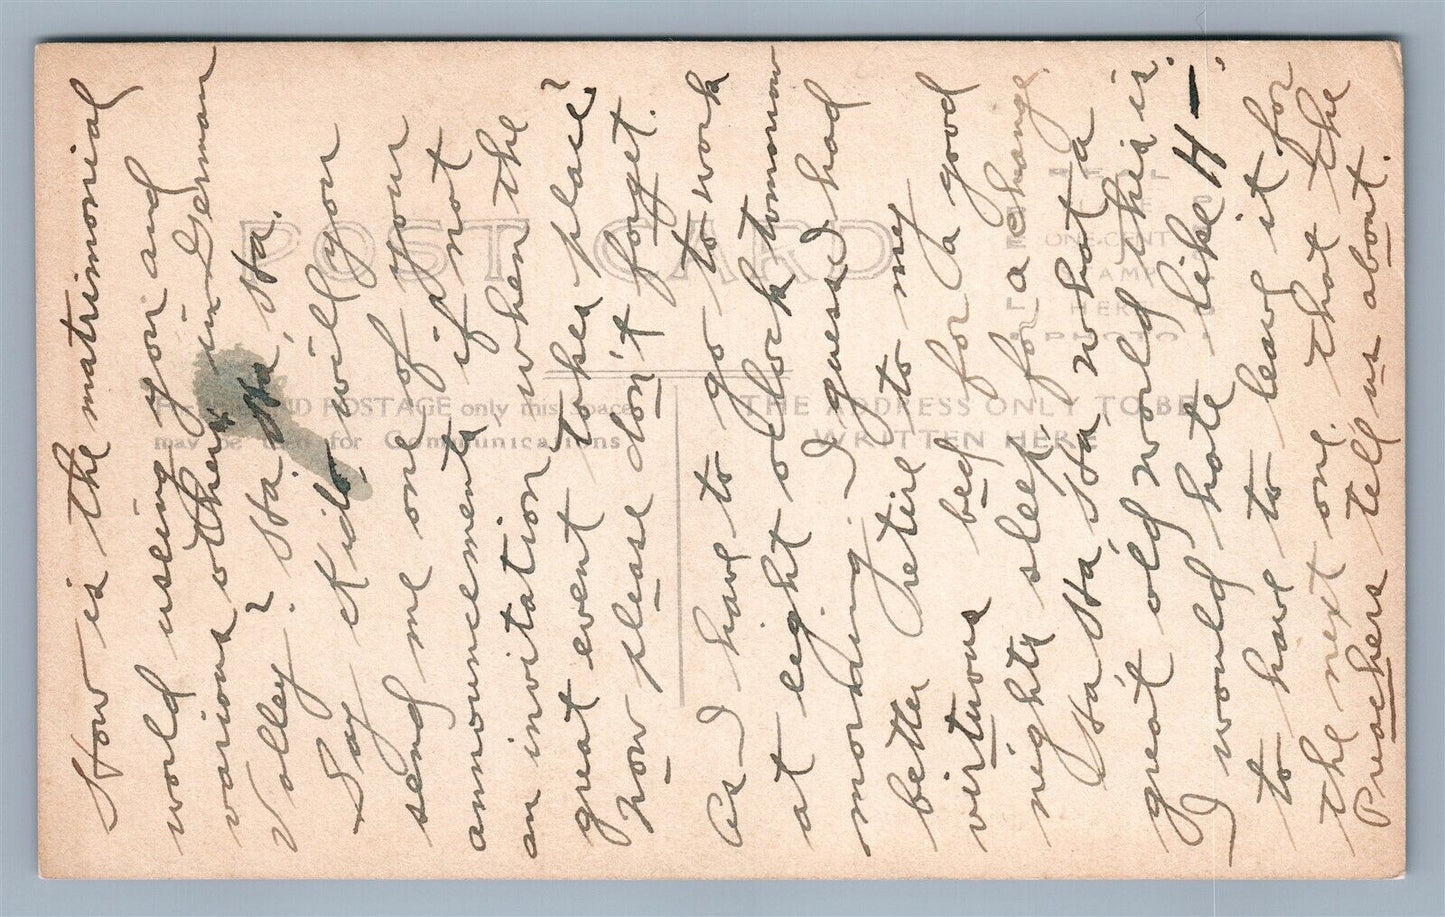 How is the matrimonial
world useing you and
various others in German
Valley? Ha, Ha, Ha, Ha.
Say Kido will you
send me one of your
announcements if not
an invitation when the
great event takes place?
Now please don't forget.
As I have to go to work
at eight o'clock tomorrow
morning. I guess I had
better retire to my
virtuous bed for a good
nights sleep for a change
Ha Ha, Ha, Ha what a
great old world this is.
I would hate like H—'
to have to leave it for
the next one. that the
Preachers tell us about.
POST CARD
For INLAND POSTAGE only this space
may be used for Communications
THE ADDRESS ONLY TO BE
WRITTEN HERE
PLACE
ONE CENT
STAMP
HERE